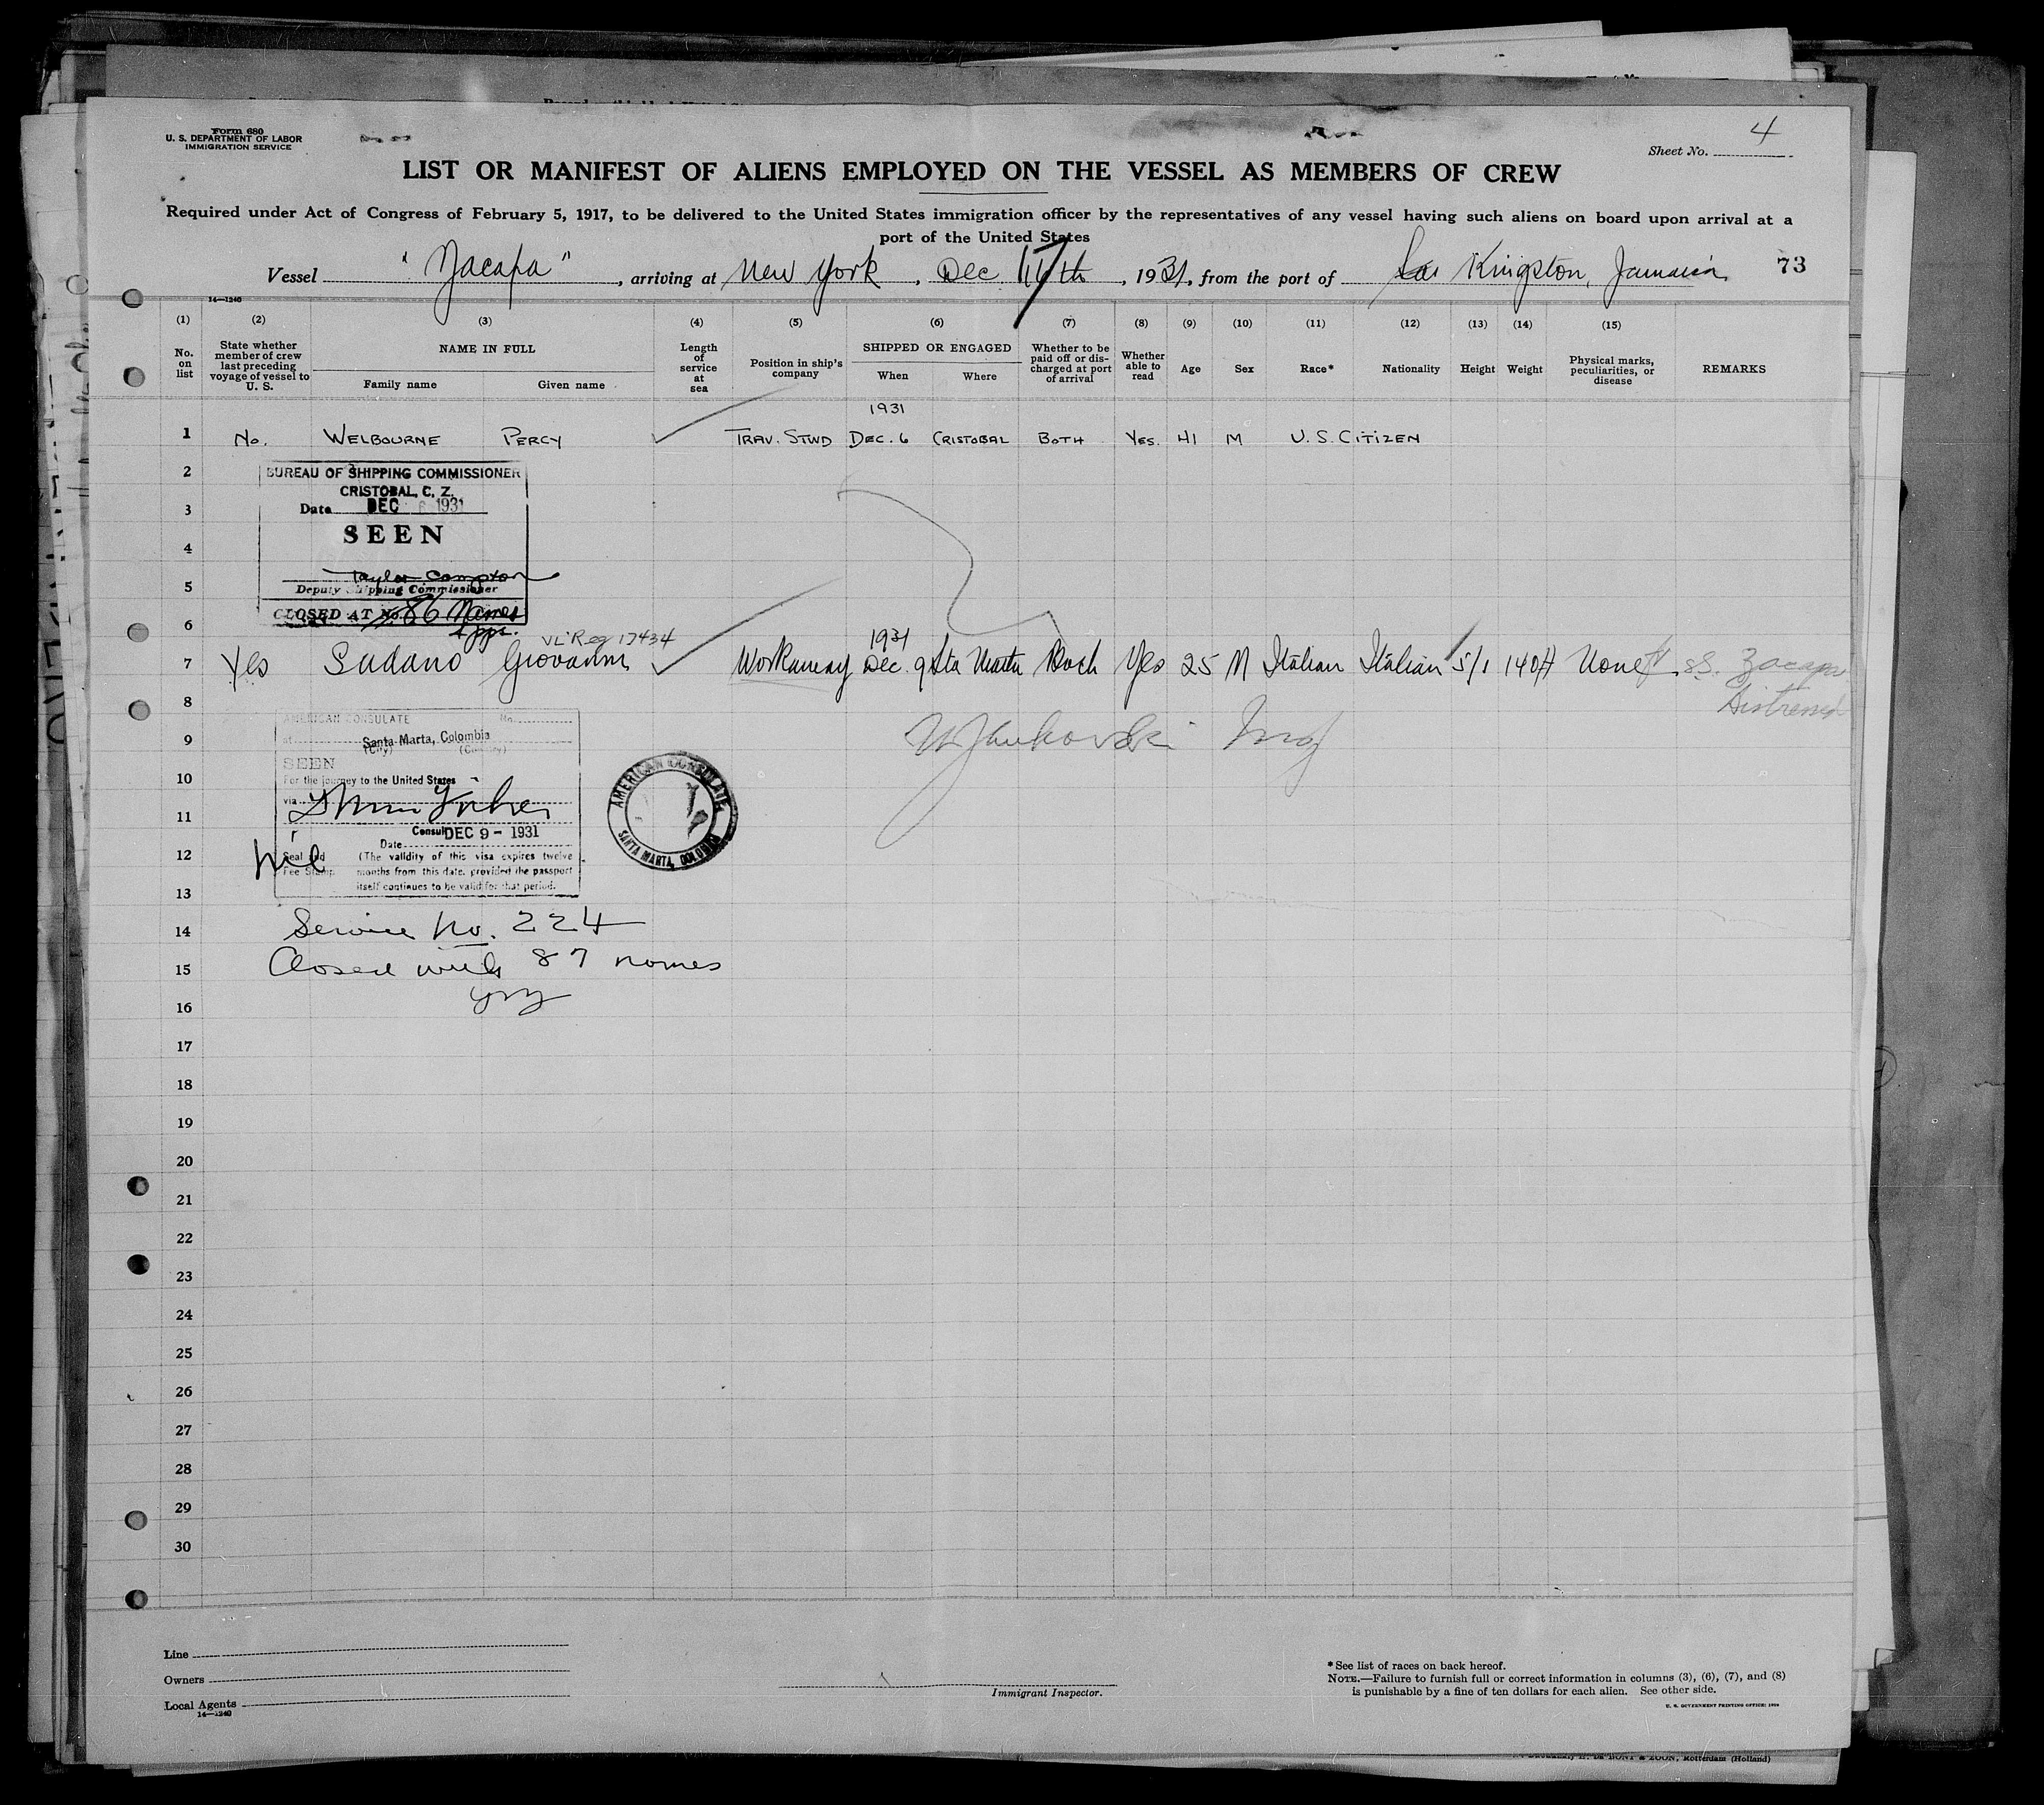 Form 680
U. S. DEPARTMENT OF LABOR
IMMIGRATION SERVICE
4
Sheet No.
LIST OR MANIFEST OF ALIENS EMPLOYED ON THE VESSEL AS MEMBERS OF CREW
Required under Act of Congress of February 5, 1917, to be delivered to the United States immigration officer by the representatives of any vessel having such aliens on board upon arrival at a
port of the United States
Vessel "Zacapa", arriving at New York, Dec. 17th, 1931, from the port of Kingston, Jamaica 73
14—1240
(1) (2) (3) (4) (5) (6) (7) (8) (9) (10) (11) (12) (13) (14) (15)
No. on list
State whether member of crew last preceding voyage of vessel to U. S.
NAME IN FULL
Family name Given name
Length of service at sea
Position in ship's company
SHIPPED OR ENGAGED
When Where
Whether to be paid off or discharged at port of arrival
Whether able to read
Age
Sex
Race*
Nationality
Height
Weight
Physical marks, peculiarities, or disease
REMARKS
1931
1 No. WELBOURNE PERCY TRAV. STWD DEC. 6 CRISTOBAL BOTH YES. 41 M U.S. CITIZEN
2
BUREAU OF SHIPPING COMMISSIONER
CRISTOBAL, C. Z.
3
Date DEC 6 1931
SEEN
4
Taylor Compton
5
Deputy Shipping Commissioner
CLOSED AT No. 86 Names
6
VL Reg 17434
1931
7 Yes Sudano Giovanni Workaway Dec. 9 Sta Marta Both Yes 25 M Italian Italian 5/1 140# None SS. Zacapa
Distressed
8
AMERICAN CONSULATE No.
9
at Santa Marta, Colombia
(City) (Country)
SEEN
10
For the journey to the United States
via
11
Consul DEC 9 - 1931
Date
AMERICAN CONSULATE
SANTA MARTA, COLOMBIA
12
nil
Seal and Fee Stamp
(The validity of this visa expires twelve
months from this date, provided the passport
itself continues to be valid for that period.
13
14 Service No. 224
15 Closed with 87 names
16
17
18
19
20
21
22
23
24
25
26
27
28
29
30
Line
Owners
Local Agents
14—1240
Immigrant Inspector.
*See list of races on back hereof.
NOTE.—Failure to furnish full or correct information in columns (3), (6), (7), and (8)
is punishable by a fine of ten dollars for each alien. See other side.
U. S. GOVERNMENT PRINTING OFFICE:
ZOON, Rotterdam (Holland)